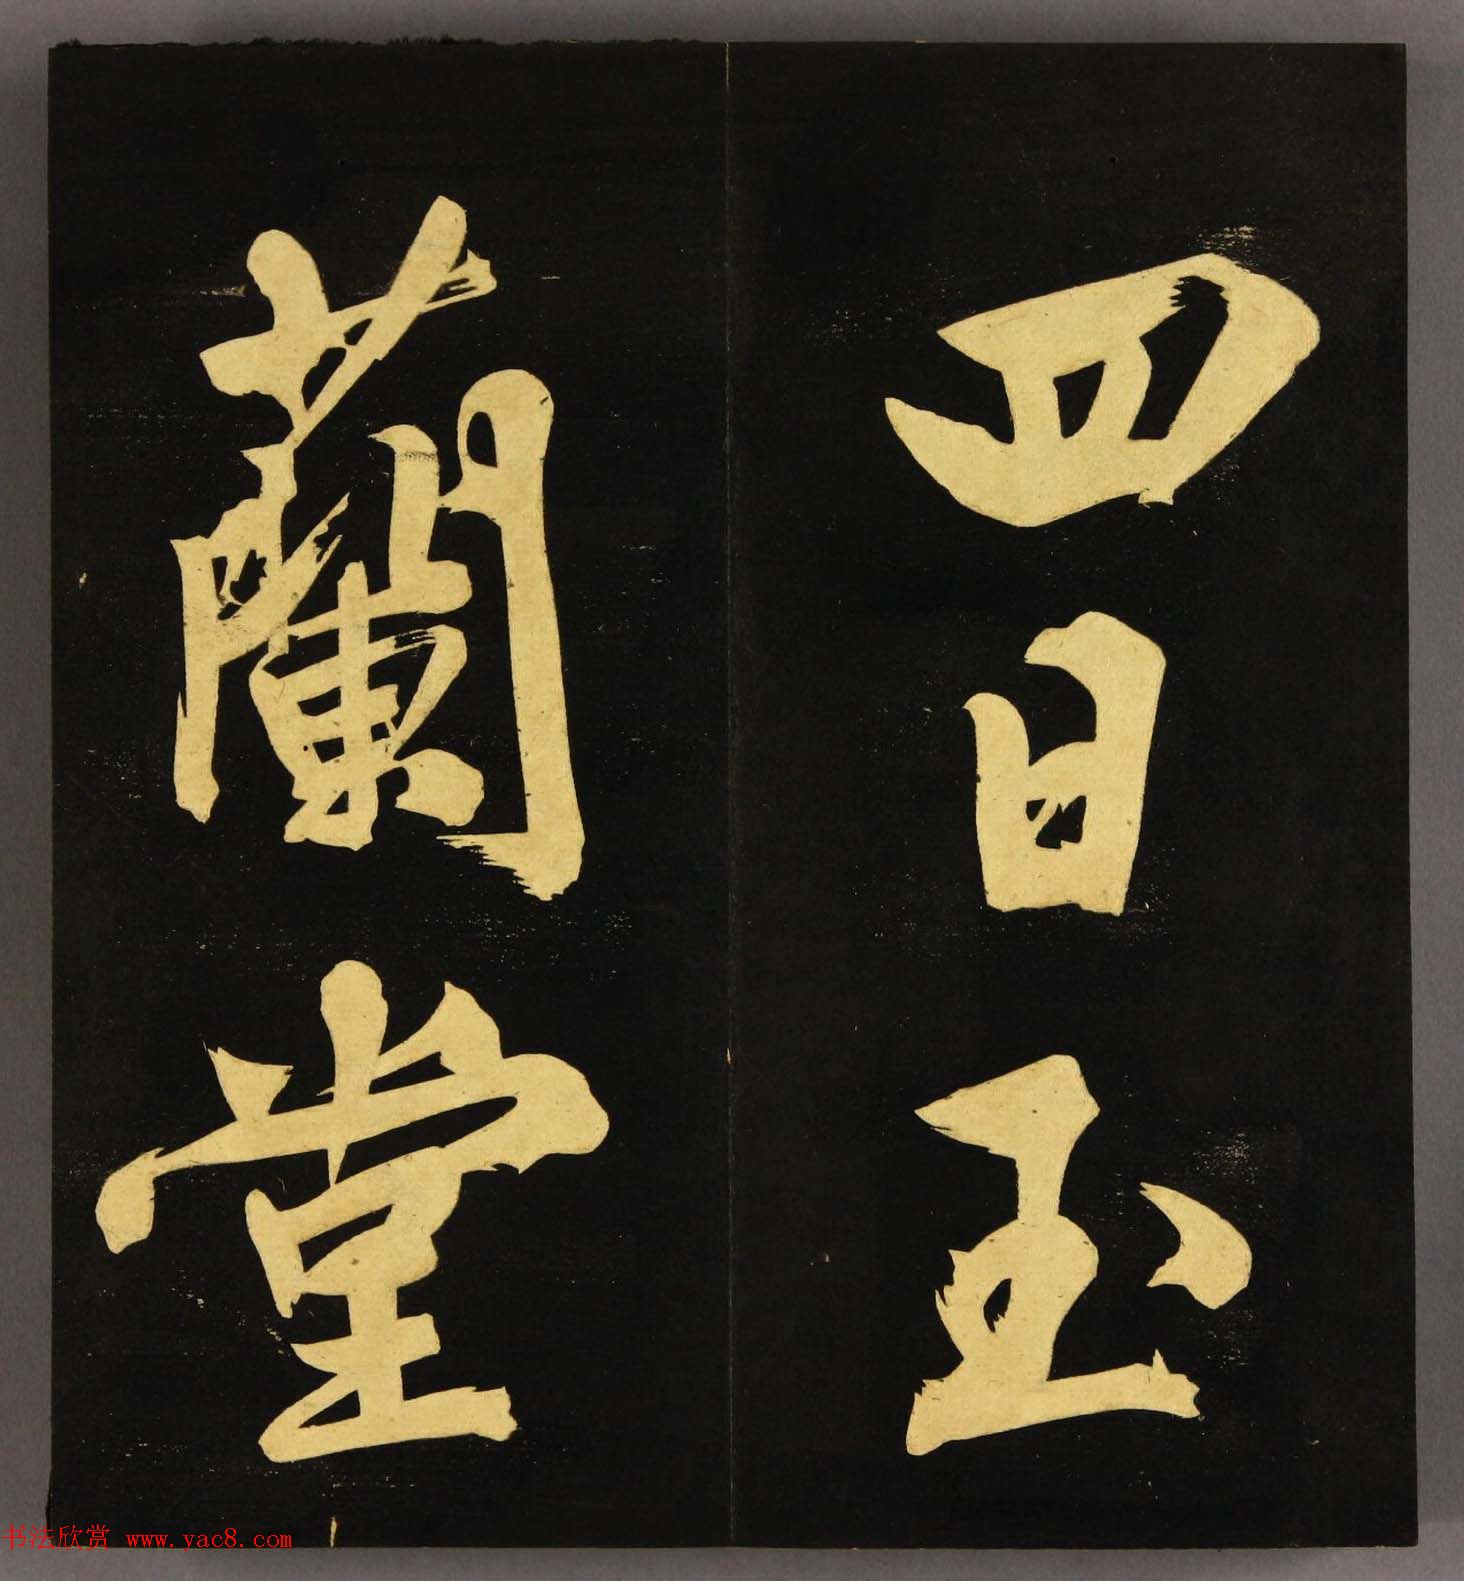 四日玉
蘭堂
书法欣赏 www.yac8.com